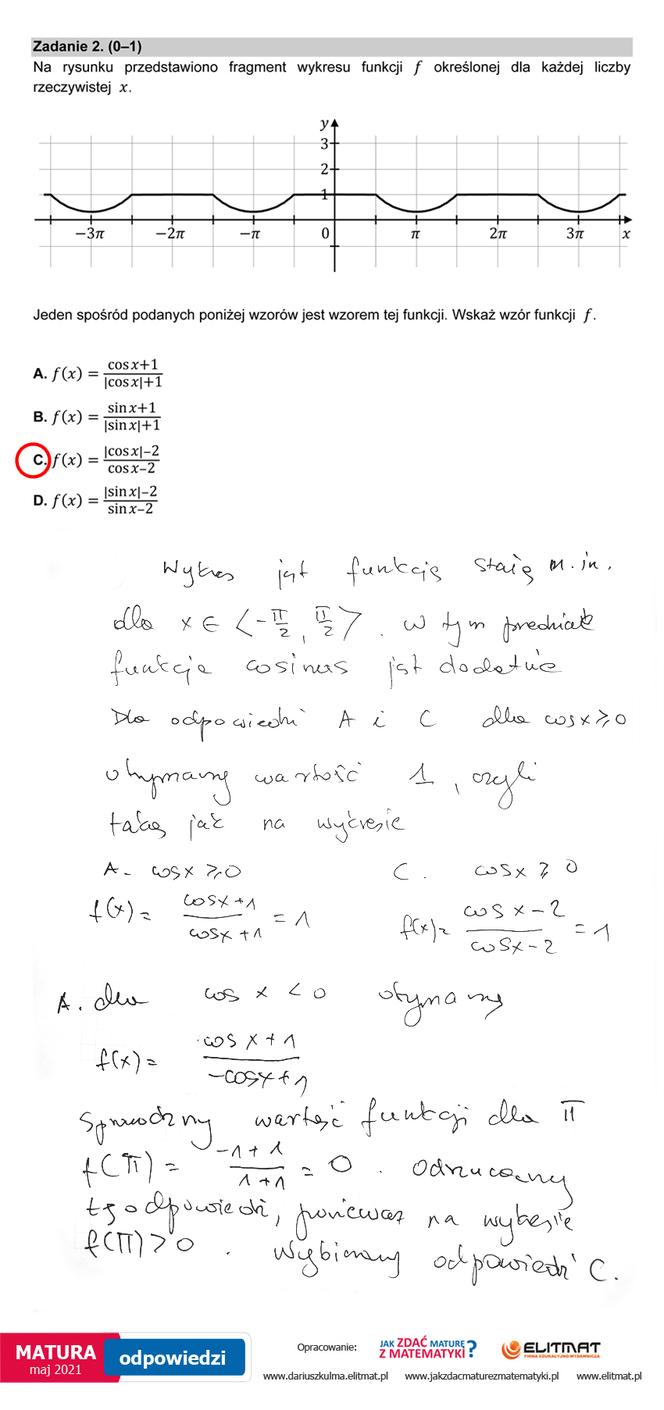 Zadanie 2. (0–1)
Na rysunku przedstawiono fragment wykresu funkcji f określonej dla każdej liczby
rzeczywistej x.
y
3
2
1
−3π −2π −π 0 π 2π 3π x
Jeden spośród podanych poniżej wzorów jest wzorem tej funkcji. Wskaż wzór funkcji f.
A. f(x) = (cos x+1)/(|cos x|+1)
B. f(x) = (sin x+1)/(|sin x|+1)
C. f(x) = (|cos x|−2)/(cos x−2)
D. f(x) = (|sin x|−2)/(sin x−2)
Wykres jest funkcją stałą m.in.
dla x ∈ <-π/2, π/2>. W tym przedziale
funkcja cosinus jest dodatnia
Dla odpowiedzi A i C dla cosx ≥ 0
otrzymamy wartość 1, czyli
taką jak na wykresie
A. cosx ≥ 0 C. cosx ≥ 0
f(x) = (cosx+1)/(cosx+1) = 1 f(x) = (cosx-2)/(cosx-2) = 1
A. dla cos x < 0 otrzymamy
f(x) = (cos x + 1)/(-cosx+1)
Sprawdzmy wartość funkcji dla π
f(π) = (-1+1)/(1+1) = 0. Odrzucamy
tę odpowiedź, ponieważ na wykresie
f(π) > 0. Wybieramy odpowiedź C.
MATURA
maj 2021
odpowiedzi
Opracowanie:
JAK ZDAĆ MATURĘ
Z MATEMATYKI?
ELITMAT
FIRMA EDUKACYJNO-WYDAWNICZA
www.dariuszkulma.elitmat.pl www.jakzdacmaturezmatematyki.pl www.elitmat.pl